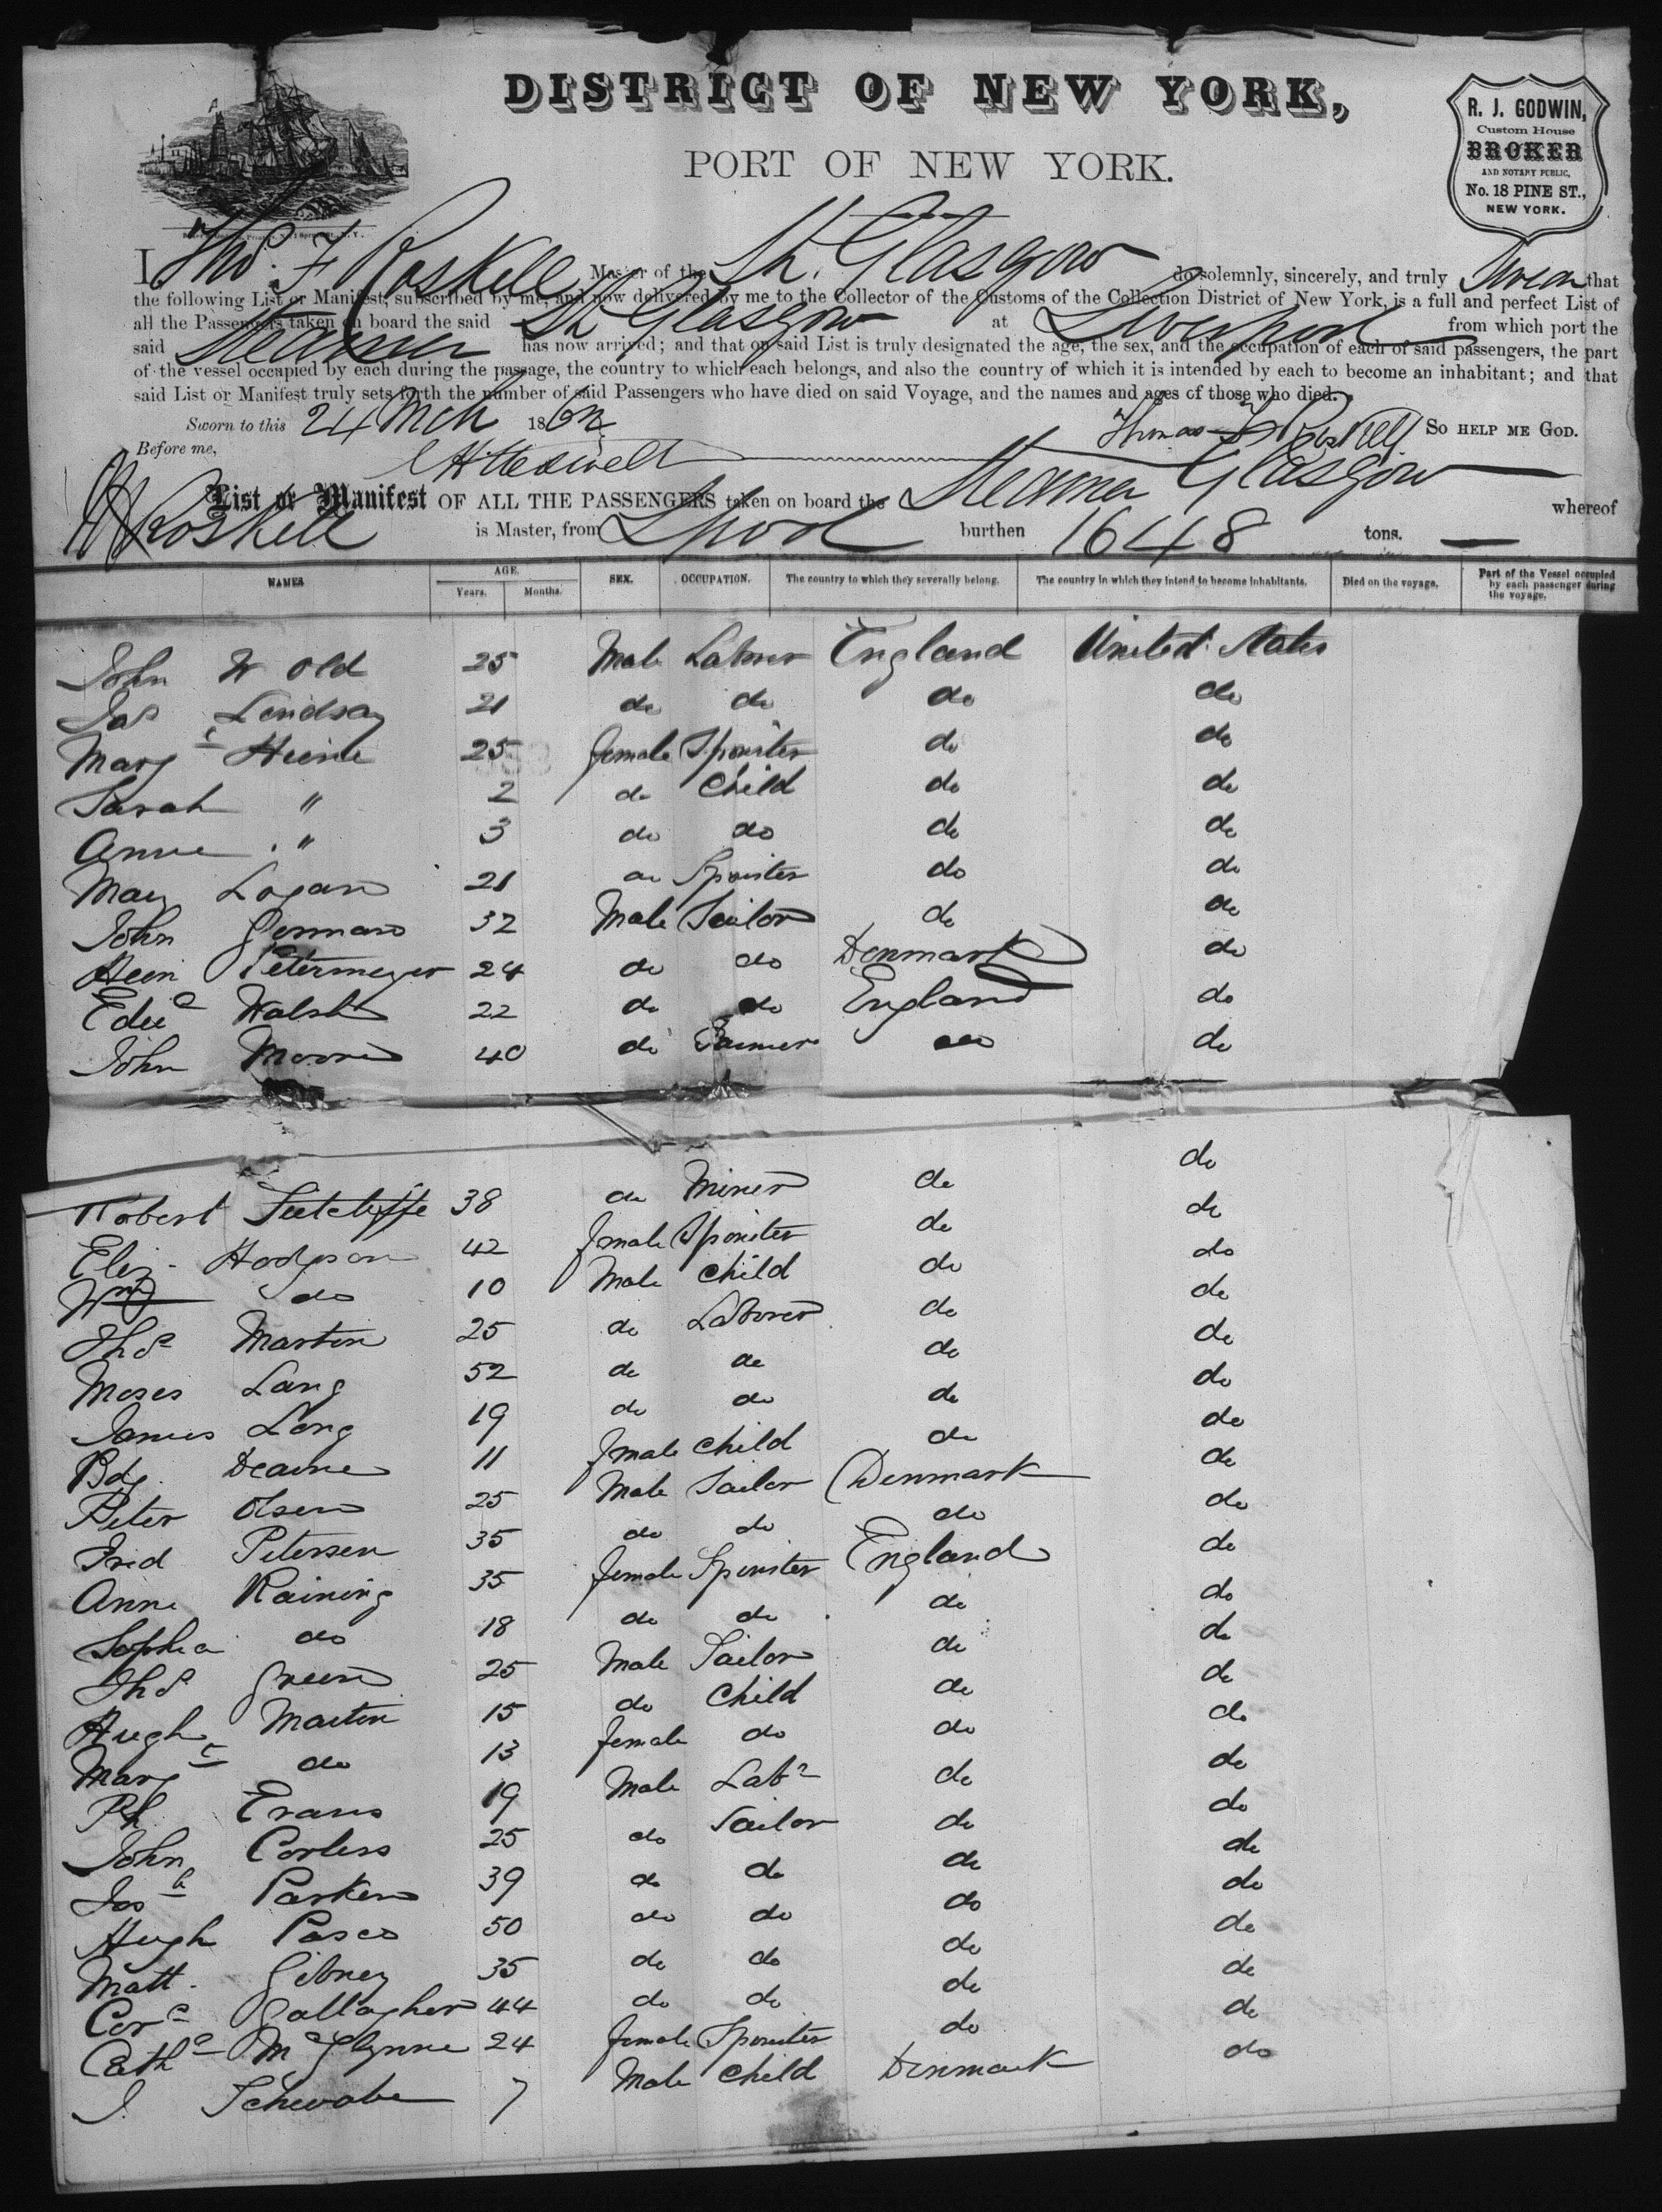 DISTRICT OF NEW YORK,
PORT OF NEW YORK.
R. J. GODWIN,
Custom House
BROKER
AND NOTARY PUBLIC,
No. 18 PINE ST.,
NEW YORK.
I Thos. F Roskell Master of the St. Glasgow do solemnly, sincerely, and truly Swear that
the following List or Manifest, subscribed by me, and now delivered by me to the Collector of the Customs of the Collection District of New York, is a full and perfect List of
all the Passengers taken on board the said St Glasgow at Liverpool from which port the
said Steamer has now arrived; and that on said List is truly designated the age, the sex, and the occupation of each of said passengers, the part
of the vessel occupied by each during the passage, the country to which each belongs, and also the country of which it is intended by each to become an inhabitant; and that
said List or Manifest truly sets forth the number of said Passengers who have died on said Voyage, and the names and ages of those who died.
Sworn to this 24 Mch 1862 Thomas F Roskell SO HELP ME GOD.
Before me,
List or Manifest OF ALL THE PASSENGERS taken on board the Steamer Glasgow whereof
Roskell is Master, from Lpool burthen 1648 tons.
NAMES AGE. Years. Months. SEX. OCCUPATION. The country to which they severally belong. The country in which they intend to become inhabitants. Died on the voyage. Part of the Vessel occupied by each passenger during the voyage.
John W Old 25 Male Labrer England United States
Jas Lindsay 21 do do do do
Margt Heine 25 female Spinster do do
Sarah " 2 do Child do do
Anne " 3 do do do do
Mary Logan 21 do Spinster do do
John German 32 Male Sailor do do
Hein Petermeyer 24 do do Denmark do
Walsh 22 do do England do
John Moore 40 do Farmer do do
Robert Sutcliffe 38 do Miner do do
Eliz. Hodgson 42 fmale Spinster do do
Wm do 10 Male Child do do
Thos Martin 25 do Labrer do do
Moses Lang 52 do do do do
James Long 19 do do do do
Bdg. Deaine 11 fmale Child do do
Peter Olsen 25 Male Sailor Denmark do
Fred Petersen 35 do do do do
Anne Raining 35 female Spinster England do
Sophia do 18 do do do do
Thos Green 25 Male Sailor do do
Hugh Martin 15 do Child do do
Margt do 13 female do do do
Ph. Evans 19 Male Labr do do
John Corless 25 do Sailor do do
Josh Parker 39 do do do do
Hugh Pasco 50 do do do do
Matt. Gibney 35 do do do do
Cors Gallagher 44 do do do do
Cathe McGlynne 24 female Spinster do do
J. Schwabe 7 Male Child Denmark do